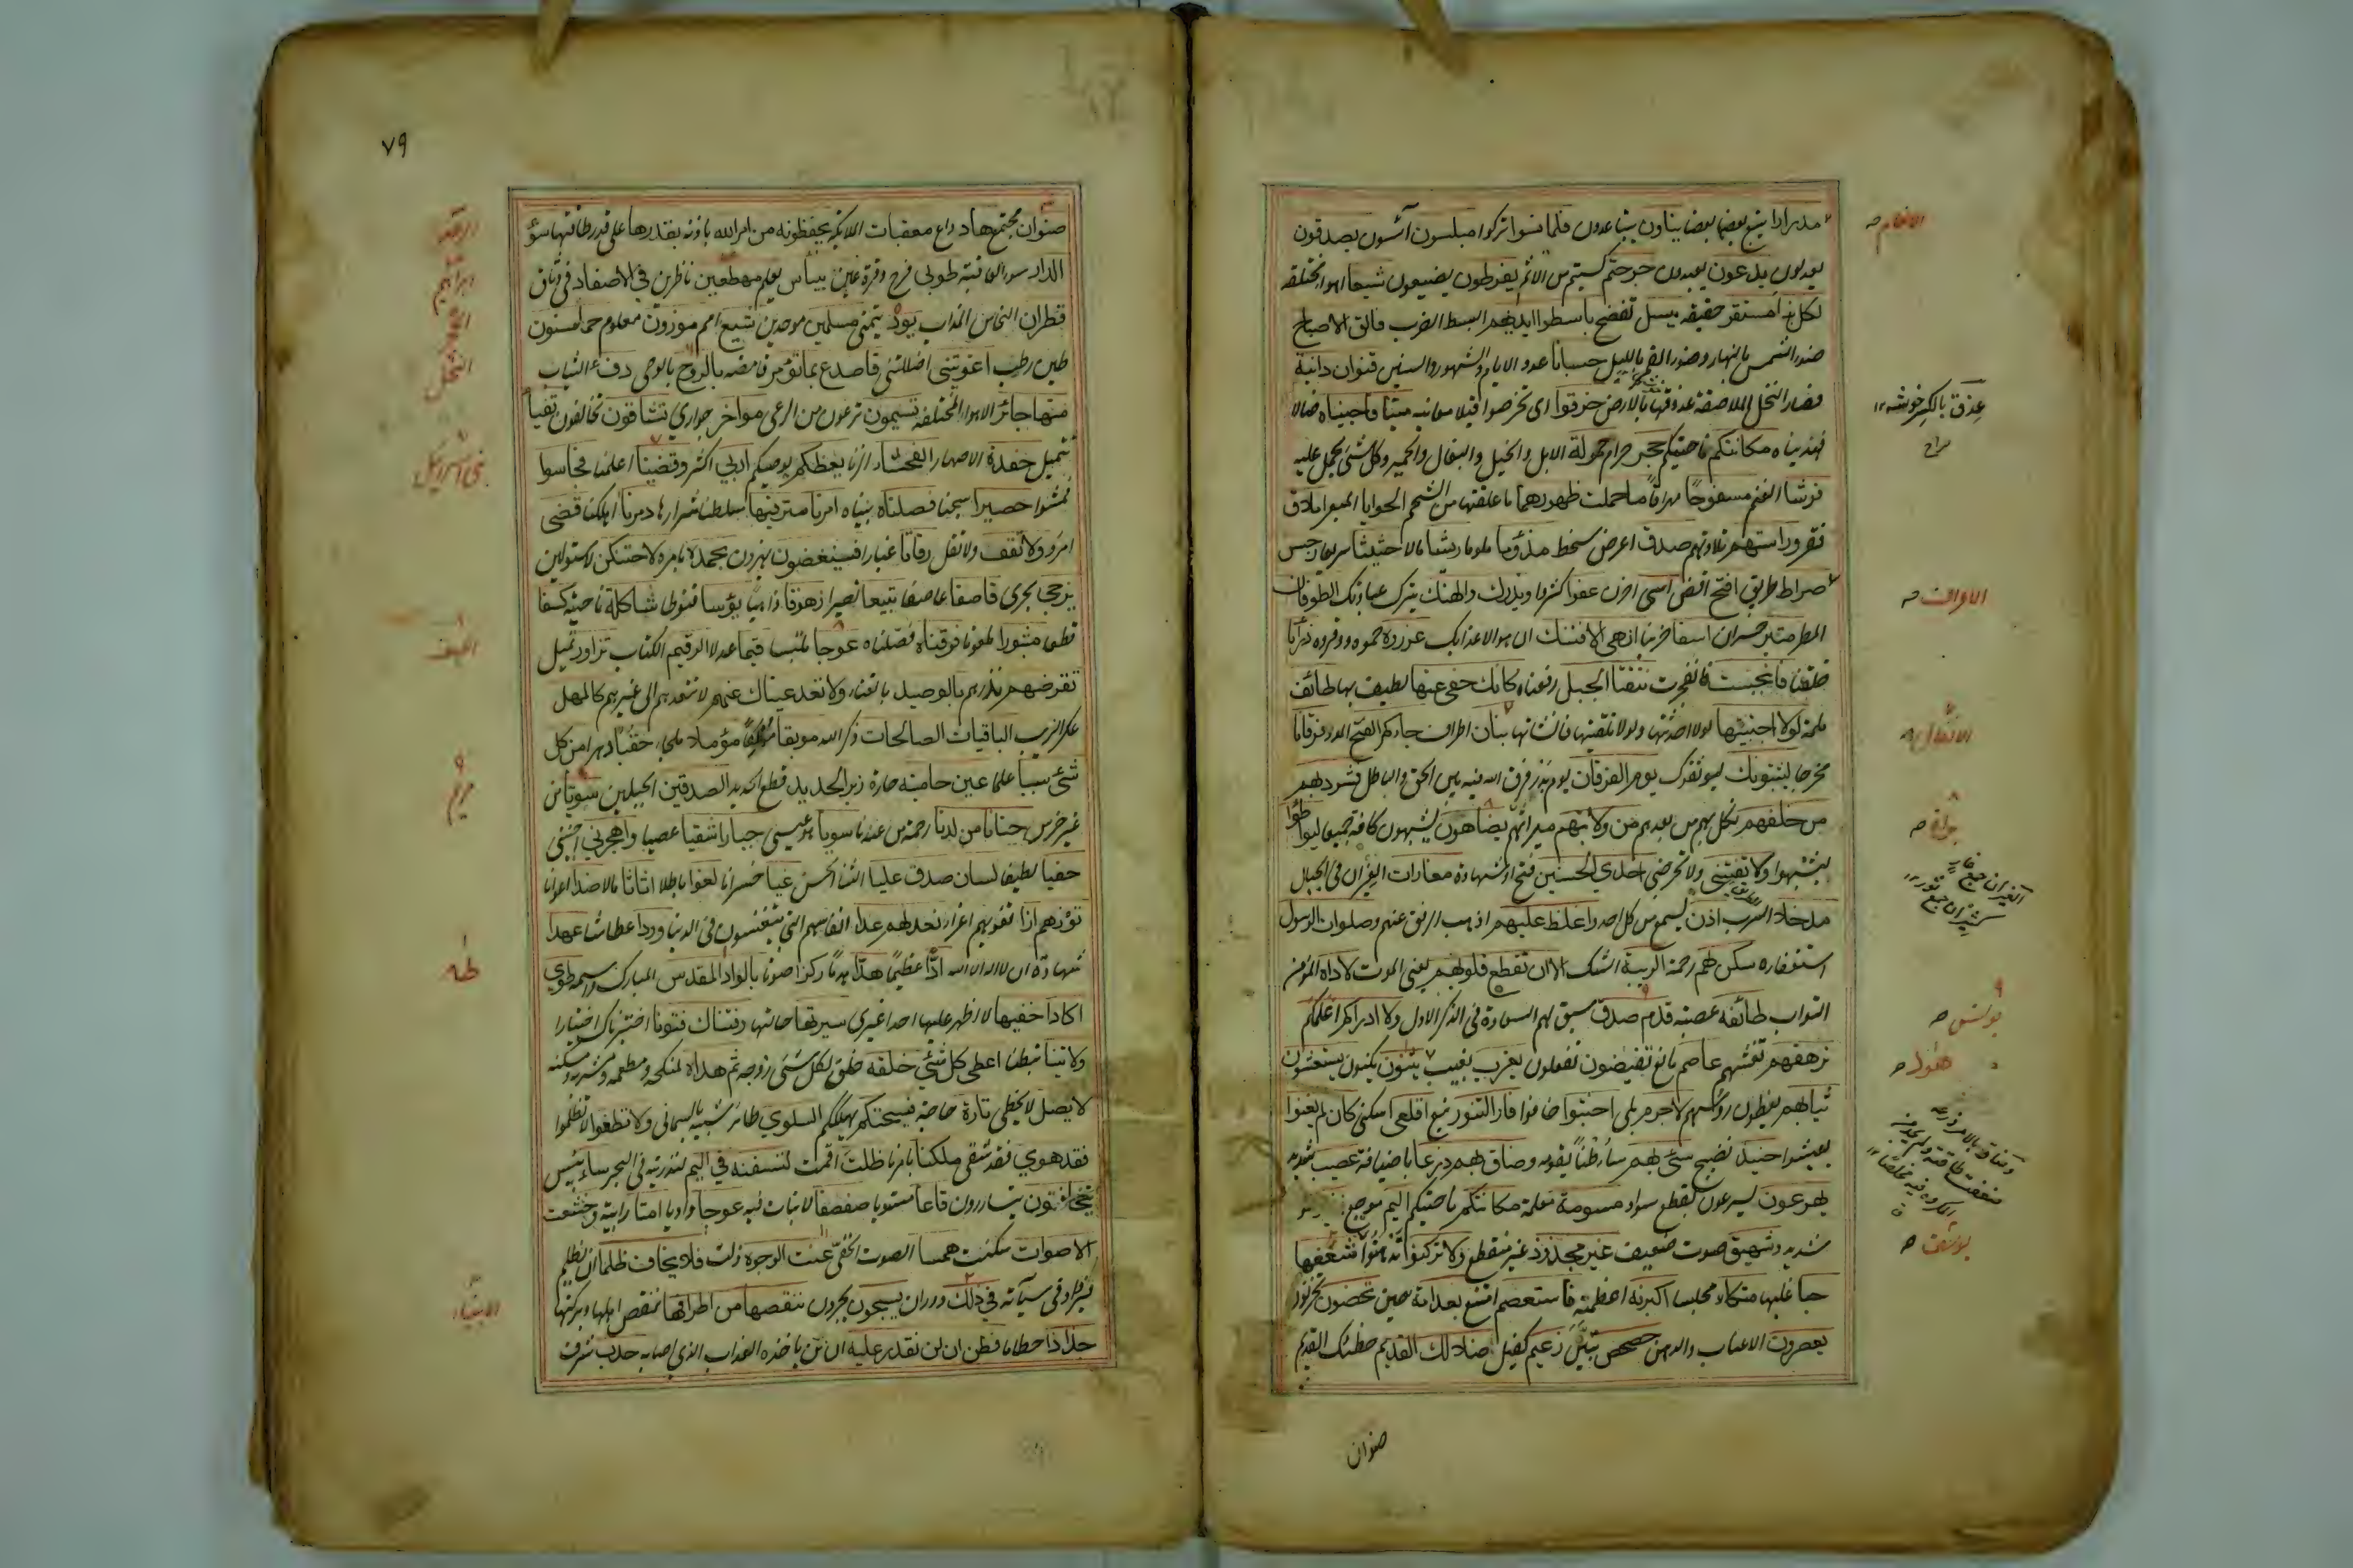 مدرارا يتبع بعضها بعضا ينأون يتباعدون فلما نسوا تركوا مبلسون آئسون يصدفون
يعدلون يدعون يعبدون جرحتم كسبتم من الاثم يفرطون يضيعون شيعا اهواء مختلفة
لكل نبأ مستقر حقيقة تبسل تفضح باسطوا ايديهم البسط الضرب فالق الاصباح
ضوء الشمس بالنهار وضوء القمر بالليل حسبانا عدد الايام والشهور والسنين قنوان دانية
قصار النخل اللاصقة عذوقها بالارض خرقوا اى تخرصوا قبلا معاينة ميتا فاحييناه ضالا
فهديناه مكانتكم ناحيتكم حجر حرام حمولة الابل والخيل والبغال والحمير وكل شئ يحمل عليه
فرشا الغنم مسفوحا مهراقا ما حملت ظهورهما ما علقتها من الشحم الحوايا المبعر املاق
فقر دراستهم تلاوتهم صدف اعرض سخط مذؤما ملوما ريشا مالا حثيثا سريعا رجس
صراط طريق افتح اقض آسى احزن عفوا كثروا ويذرك والهتك يترك عبادتك الطوفان
المطر متبر خسران اسفا حزينا ان هي الا فتنتك ان هو الا عذابك عزروه حموه ووقروه ذرأنا
خلقنا فانبجست فانفجرت نتقنا الجبل رفعناه كانك حفى عنها لطيف بها طائف
لمة لولا اجتبيتها لولا احدثتها ولولا تلقيتها فانشأتها بنان اطراف جاءكم الفتح المدد فرقانا
مخرجا ليثبتوك ليوثقوك يوم الفرقان يوم بدر فرق الله فيه بين الحق والباطل فشرد بهم
من خلفهم نكل بهم من بعدهم من ولايتهم ميراثهم يضاهون يشبهون كافة جميعا ليواطئوا
ليشبهوا ولا تفتنى ولا تحرضى احدى الحسنين فتح او شهادة مغارات الغيران فى الجبال
مدخلا السرب اذن يسمع من كل احد واغلظ عليهم اذهب الرفق عنهم وصلوات الرسول
استغفاره سكن لهم رحمة الريبة الشك الا ان تقطع قلوبهم يعنى الموت لاواه المؤمن
التواب طائفة عصبة قدم صدق سبق لهم السعادة فى الذكر الاول ولا ادراكم اعلمكم
ترهقهم تغشهم عاصم مانع تفيضون تفعلون يعزب يغيب يثنون يكنون يستغشون
ثيابهم يغطون رؤسهم لا جرم بلى اخبتوا خافوا فار التنور نبع اقلعى اسكنى كان لم يغنوا
يعيشوا حنيذ نضيج سئ بهم ساء ظنا بقومه وضاق بهم ذرعا باضيافه عصيب شديد
يهرعون يسرعون بقطع سواد مسومة معلمة مكانتكم ناحيتكم اليم موجع
شديد وشهيق صوت ضعيف غير مجذوذ غير منقطع ولا تركنوا تذهنوا شغفها
حبا غلبها متكاء مجلسا اكبرنه اعظمنه فاستعصم امتنع بعد امة حين تحصنون تحرزون
يعصرون الاعناب والدهن حصحص تبين زعيم كفيل ضلالك القديم خطئك القديم
صنوان
الانعام
عذق بالكسر خوشه
الاعراف
الانفال
براءة
يونس
هود
يوسف
٧٩
صنوان مجتمع هاد داع معقبات الملائكة يحفظونه من امر الله باذنه بقدرها على قدر طاقتها سوء
الدار سوء العاقبة طوبى فرح وقرة عين ييأس يعلم مهطعين ناظرين فى الاصفاد فى وثاق
قطران النحاس المذاب يود يتمنى مسلمين موحدين شيع امم موزون معلوم حمأ مسنون
طين رطب اغويتنى اضللتنى فاصدع بما تؤمر فامضه بالروح بالوحى دفء الثياب
منها جائر الاهواء المختلفة تسيمون ترعون من الرعى مواخر جوارى تشاقون تخالفون تفيأ
تتميل حفدة الاصهار الفحشاء الزنا يعظكم يوصيكم اربى اكثر وقضينا اعلمنا فجاسوا
فمشوا حصيرا سجنا فصلناه بيناه امرنا مترفيها سلطنا شرارها دمرنا اهلكنا قضى
امر ولا تقف ولا تقل رفاتا غبارا فسينغضون يهزون بحمده بامره لاحتنكن لاستولين
يزجى يجرى قاصفا عاصفا تبيعا نصيرا زهوقا ذاهبا يؤسا قنوطا شاكلة ناحية كسفا
قطعا مثبورا ملعونا فرقناه فصلناه عوجا ملتبسا قيما عدلا الرقيم الكتاب تزاور تميل
تقرضهم تذرهم بالوصيد بالفناء ولا تعد عيناك عنهم لا تتعدهم الى غيرهم كالمهل
عكر الزيت الباقيات الصالحات ذكر الله موبقا مهلكا مؤئلا ملجاء حقبا دهرا من كل
شئ سببا علما عين حامية حارة زبر الحديد قطع الحديد الصدفين الجبلين سويا من
غير خرس حنانا من لدنا رحمة من عندنا سريا هو عيسى جبارا شقيا عصيا واهجرنى اجنبنى
حفيا لطيفا لسان صدق عليا الثناء الحسن غيا خسرانا لغوا باطلا اثاثا مالا ضدا اعوانا
تؤزهم ازا تغويهم اغواء نعد لهم عدا انفاسهم التى يتنفسون فى الدنيا وردا عطاشا عهدا
شهادة ان لا اله الا الله ادا عظيما هدا هدما ركزا صوتا بالواد المقدس المبارك واسمه طوى
اكاد اخفيها لا اظهر عليها احدا غيرى سيرتها حالتها وفتناك فتونا اختبرناك اختبارا
ولا تنيا تبطئا اعطى كل شئ خلقه خلق لكل شئ زوجه ثم هداه لمنكحه ومطعمه ومشربه ومسكنه
لا يضل لا يخطى تارة حاجة فيسحتكم يهلككم السلوى طائر شبيه بالسمانى ولا تطغوا لا تظلموا
فقد هوى فقد شقى بملكنا بامرنا ظلت اقمت لننسفنه فى اليم لنذرينه فى البحر ساء بئس
يتخافتون يتسارون قاعا مستويا صفصفا لا نبات فيه عوجا واديا امتا رابية وخشعت
الاصوات سكنت همسا الصوت الخفى عنت الوجوه ذلت فلا يخاف ظلما ان يظلم
فيزاد فى سيآته فى فلك دوران يسبحون يجرون ننقصها من اطرافها ننقص اهلها وبركتها
جذاذا حطاما فظن ان لن نقدر عليه ان لن ياخذه العذاب الذى اصابه حدب شرف
الرعد
ابراهيم
الحجر
النحل
بنى اسرائيل
الكهف
مريم
طه
الانبياء